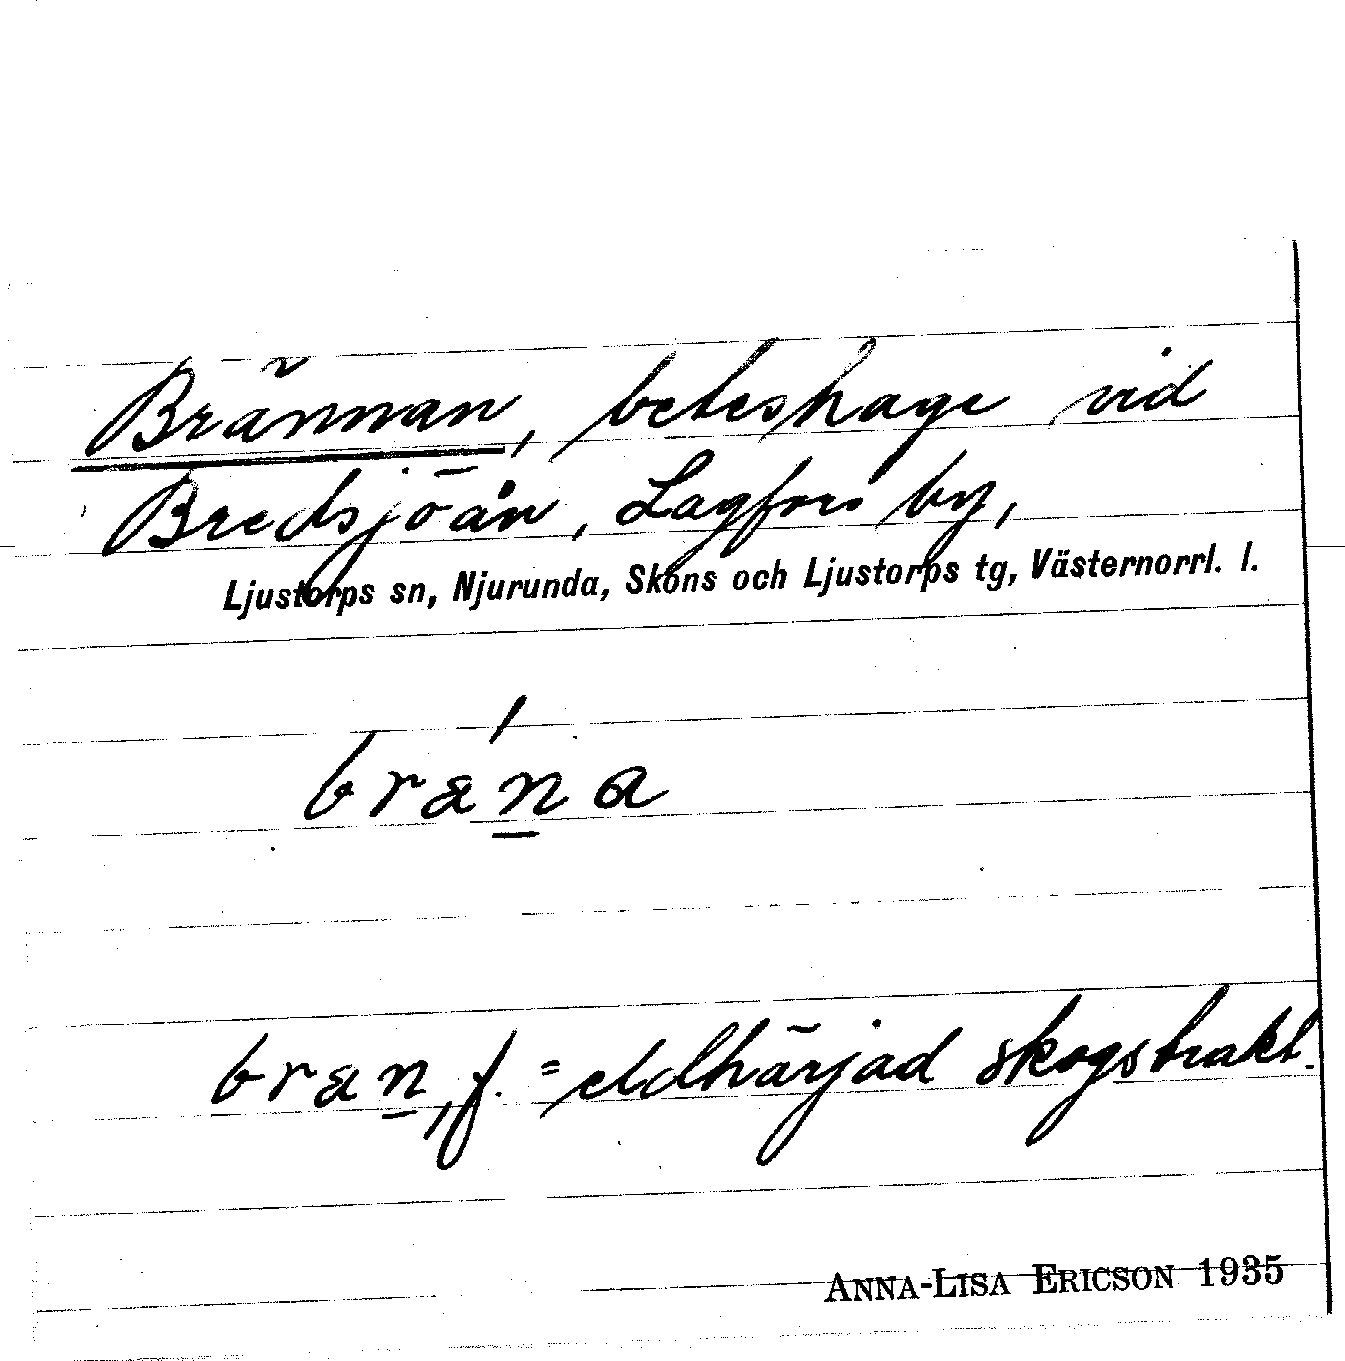 Brännan, beteshage vid
Bredsjöån, Lagfors by,
Ljustorps sn, Njurunda, Sköns och Ljustorps tg, Västernorrl. l.
bræ´n̲a
bræn̲, f. = eldhärjad skogstrakt.
ANNA-LISA ERICSON 1935